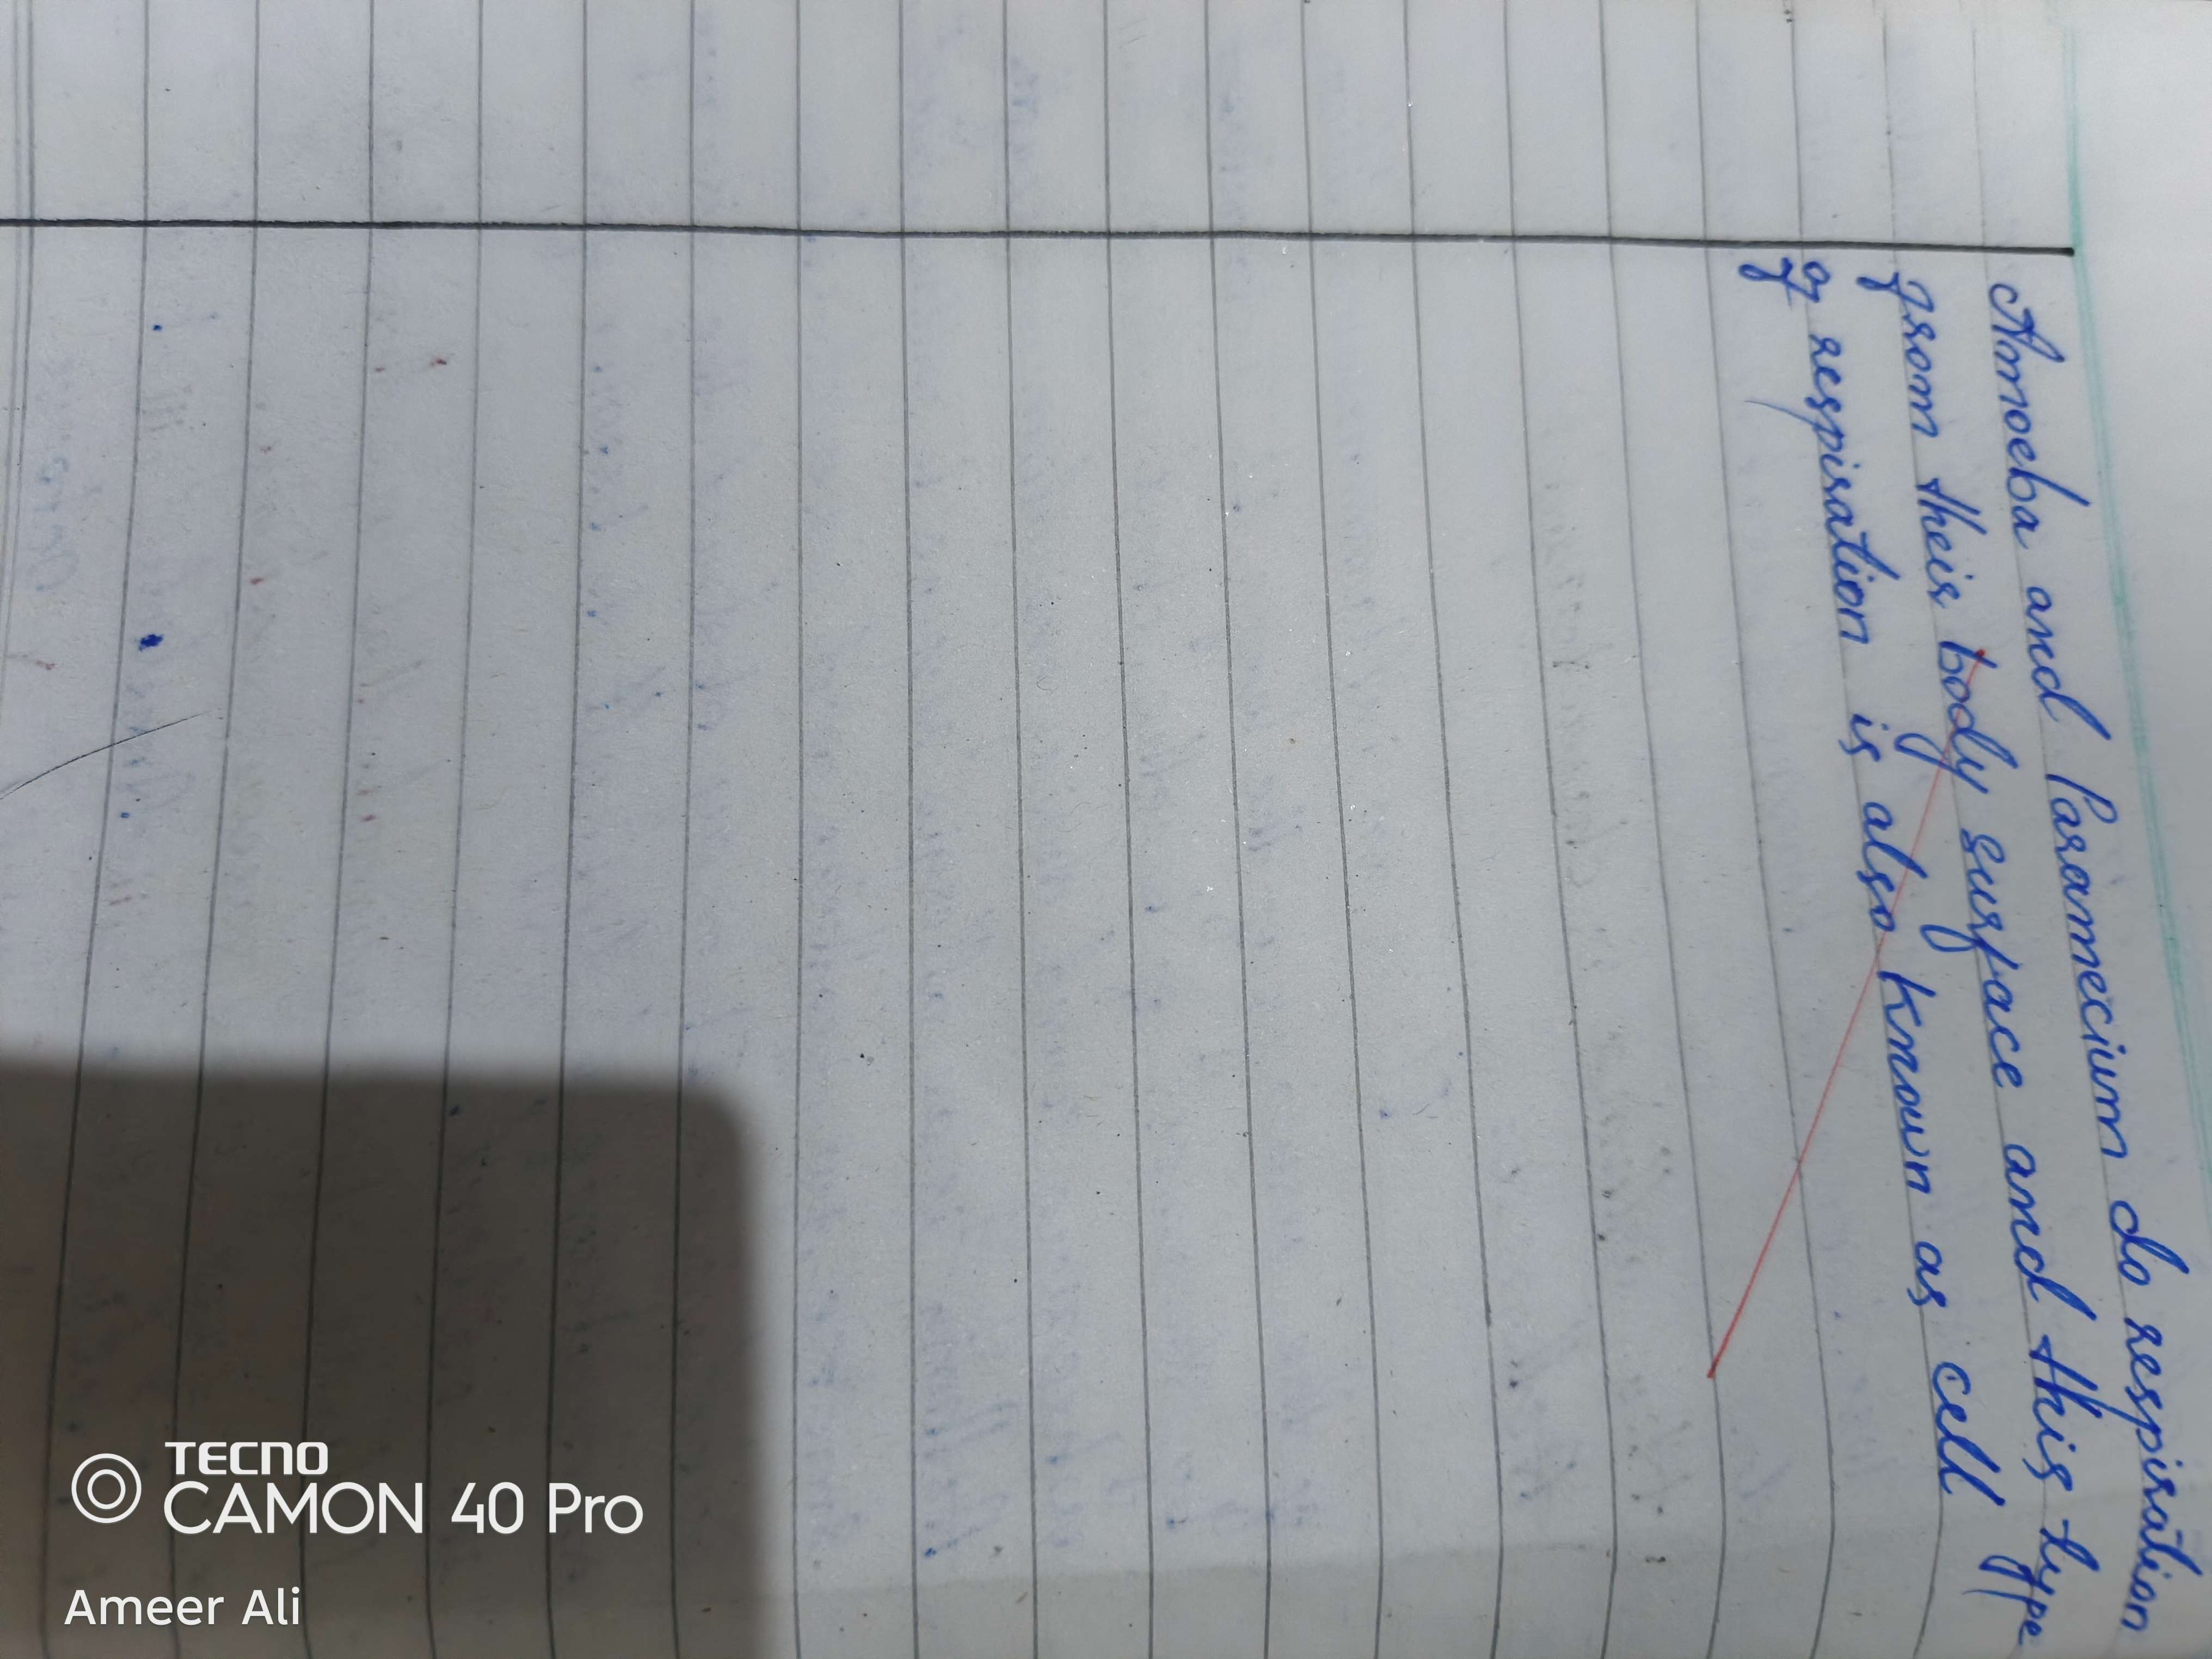 Amoeba and Paramecium do respiration
from their body surface and this type
of respiration is also known as cell
TECNO
CAMON 40 Pro
Ameer Ali